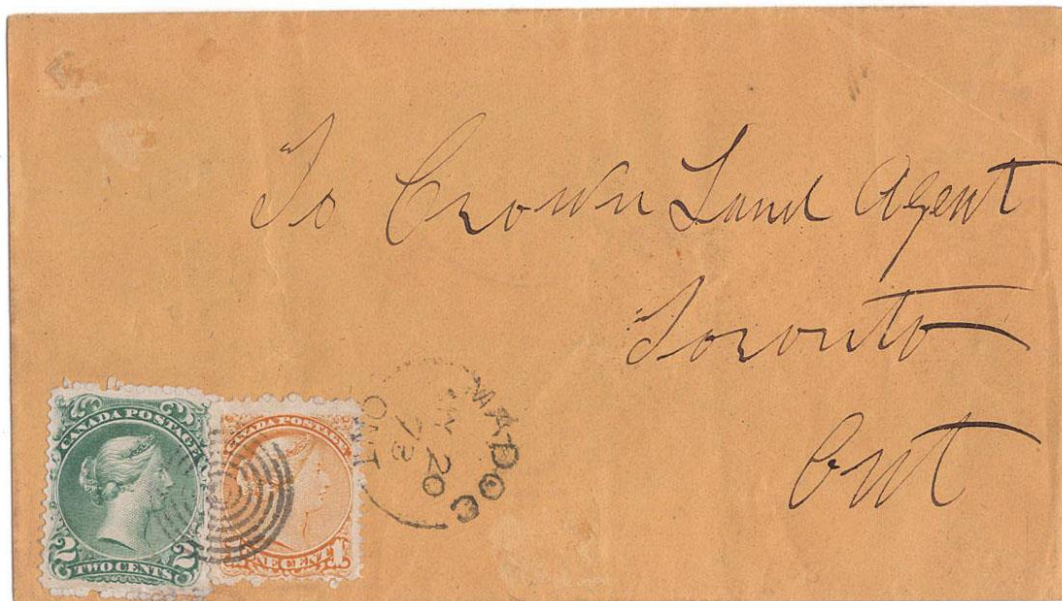 To Crown Land Agent
Toronto
Ont
MADOC
MY 20
73
ONT
CANADA POSTAGE
2 2
TWO CENTS
CANADA POSTAGE
ONE CENT 1